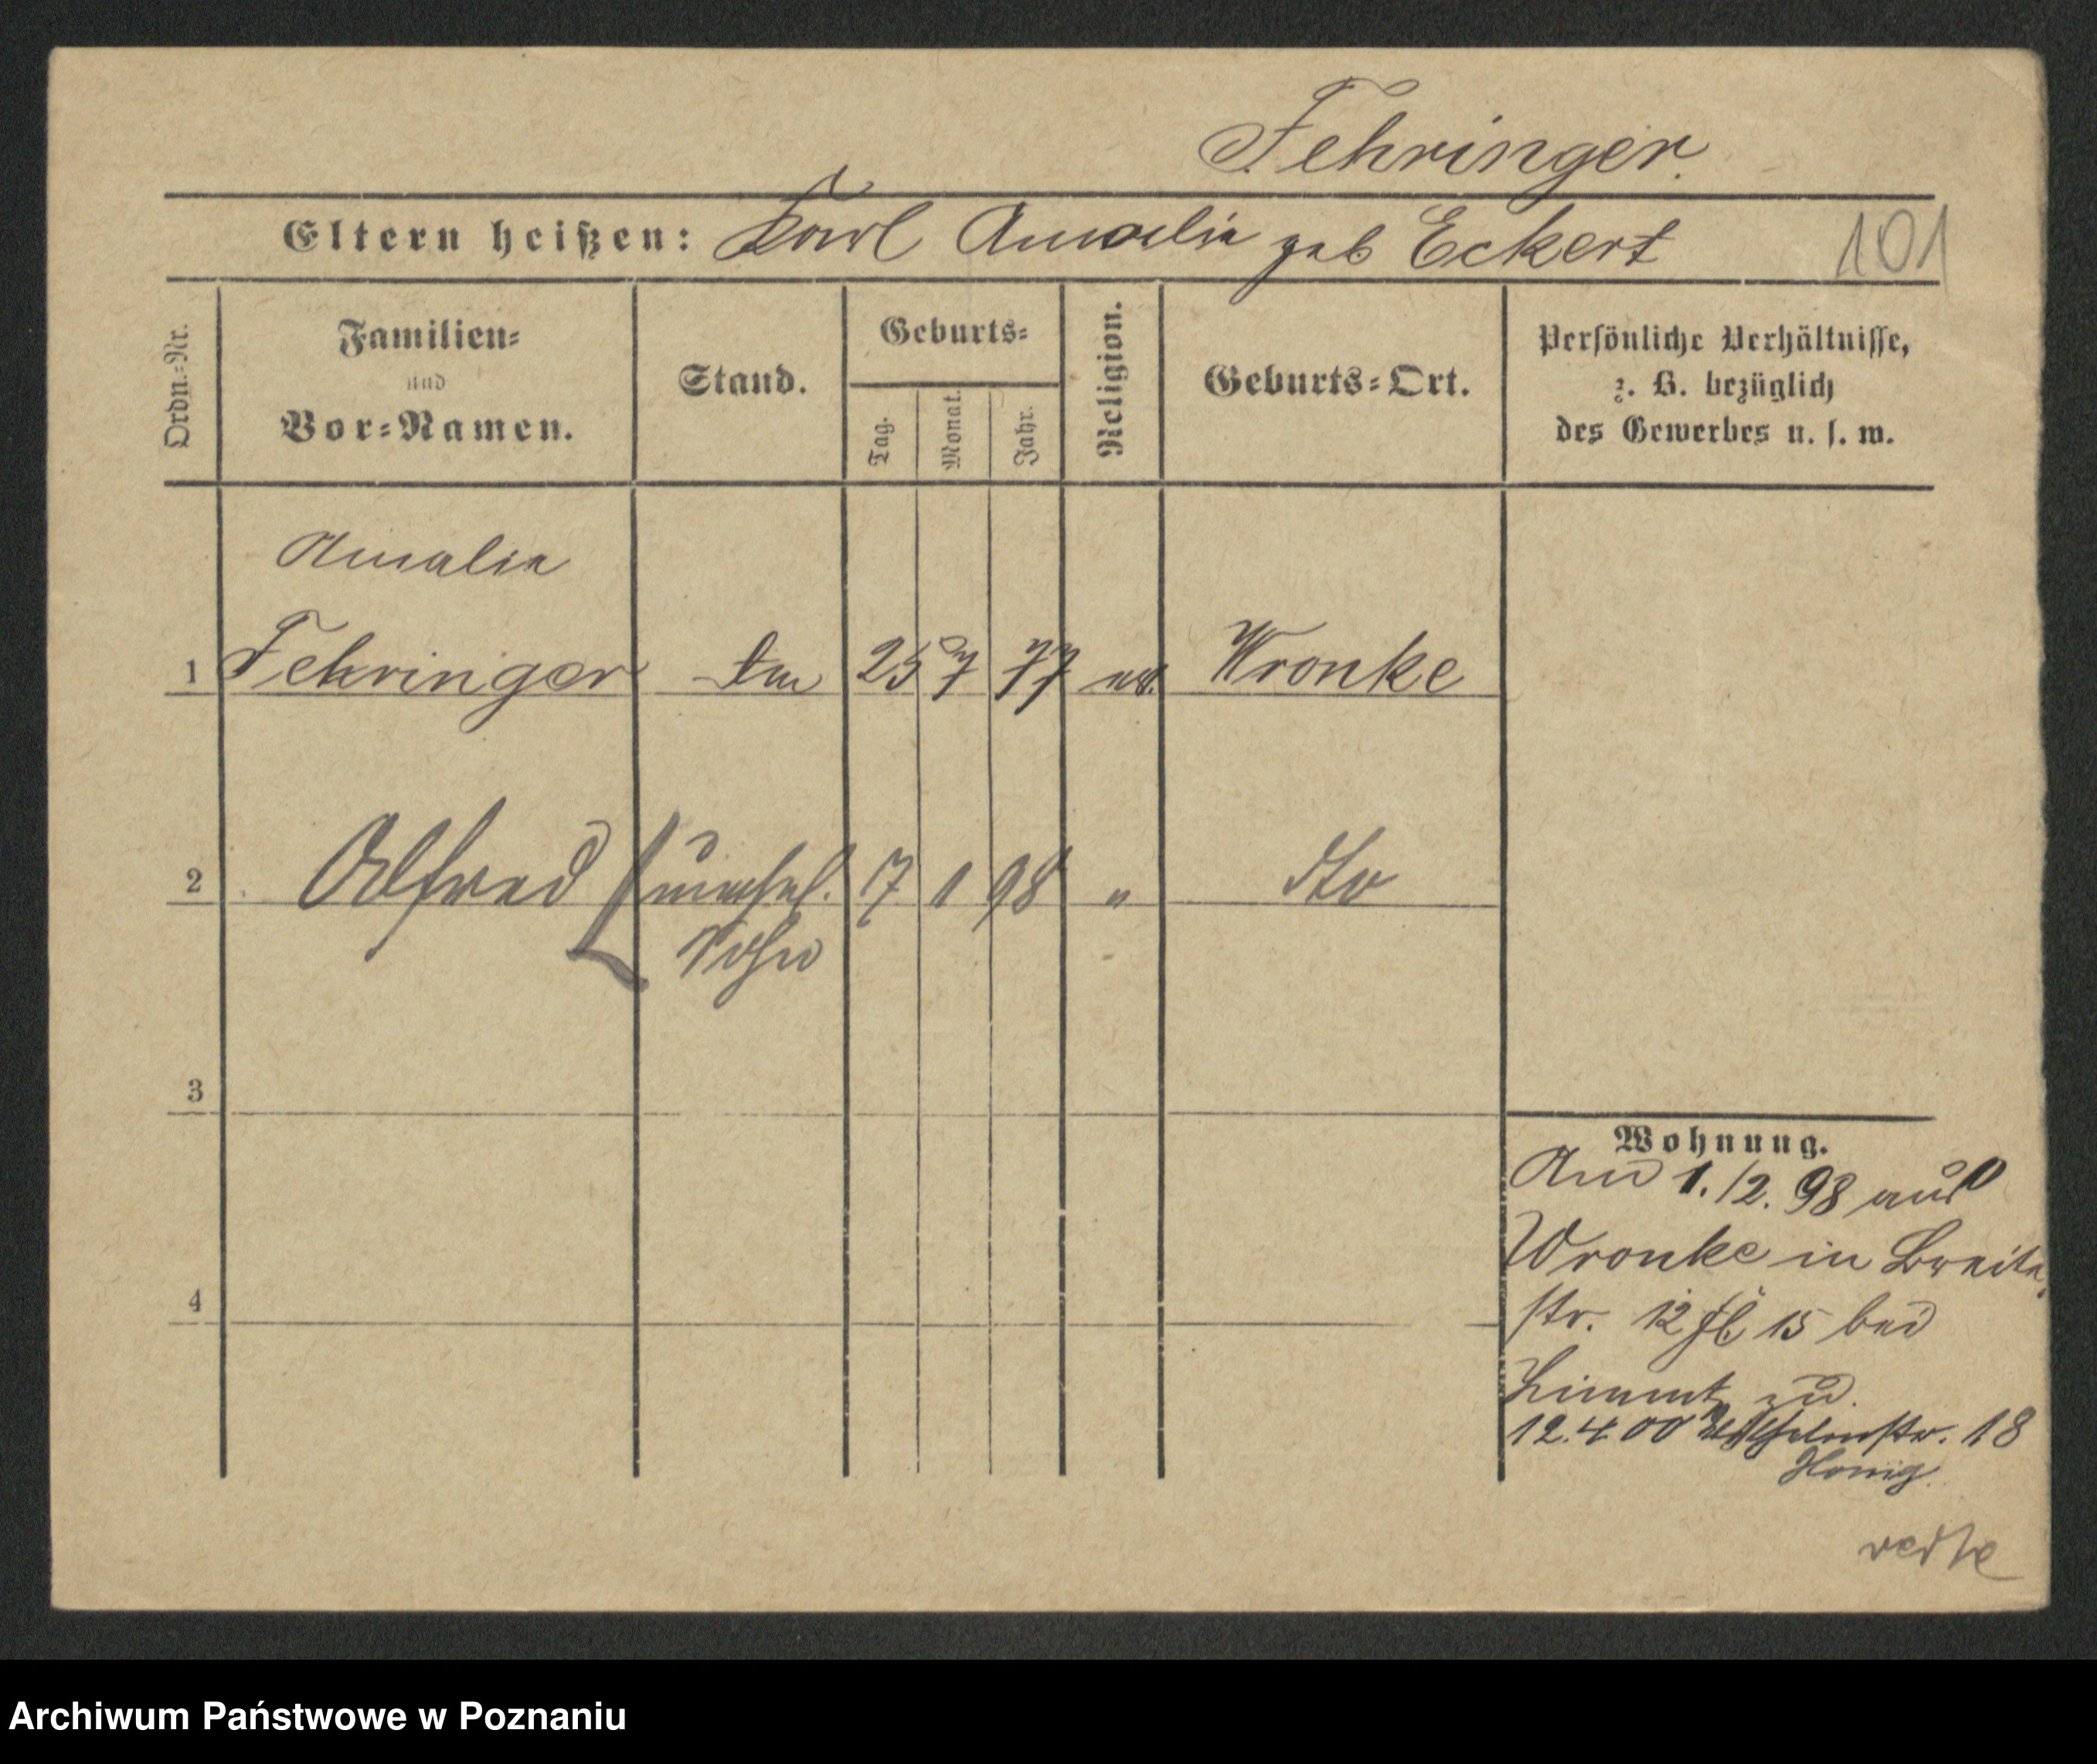 Fehringer.
Eltern heißen: Karl Amalie geb Eckert
101
Ordn.-Nr.
Familien-
und
Vor-Namen.
Stand.
Geburts-
Tag.
Monat.
Jahr.
Religion.
Geburts-Ort.
Persönliche Verhältnisse,
z. B. bezüglich
des Gewerbes u. s. w.
Amalie
1 Fehringer 25 7 77 Wronke
2 Alfred unehel. 17 1 98 " dto
Sohn
3
4
Wohnung.
Am 1./2. 98 aus
Wronke in Breite
str. 12 15 bei
zu.
12.4.00 18
Honig.